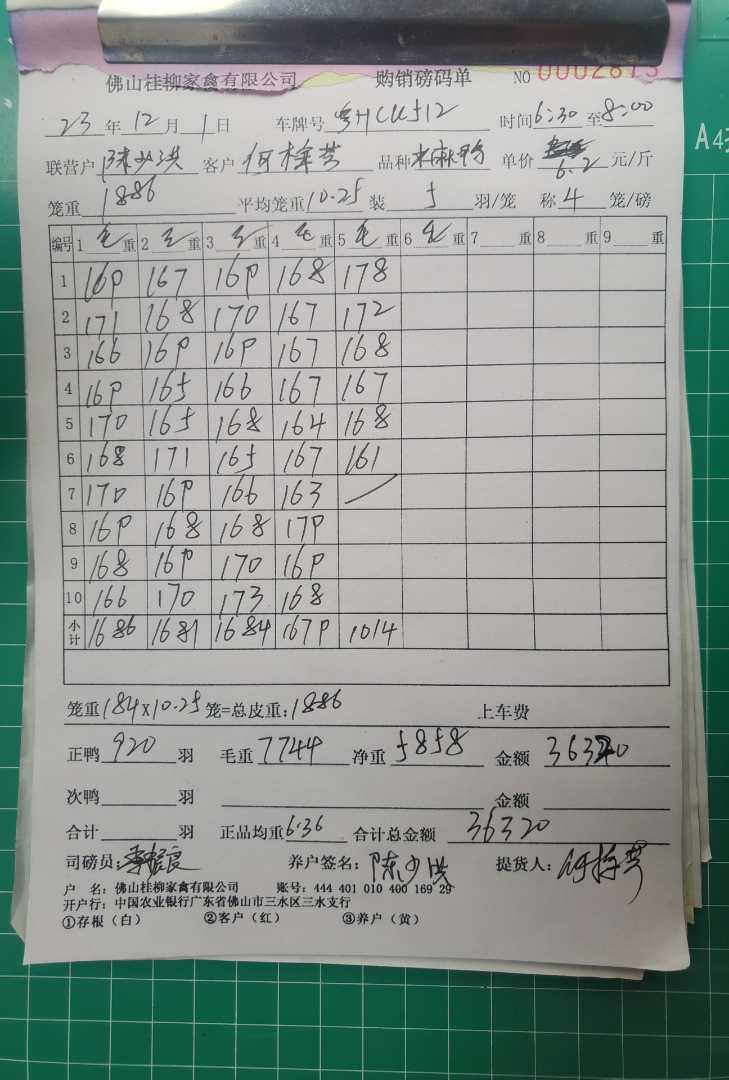 佛山桂柳家禽有限公司 购销磅码单 NO 0002813
23 年 12 月 1 日 车牌号 粤HCK512 时间 6:30 至 8:00
联营户 陈少洪 客户 何梅芳 品种 麻鸭 单价 6.2 元/斤
笼重 1886 平均笼重 10.25 装 5 羽/笼 称 4 笼/磅
编号 1 毛 重 2 毛 重 3 毛 重 4 毛 重 5 毛 重 6 毛 重 7 重 8 重 9 重
1 169 167 169 168 178
2 171 168 170 167 172
3 166 169 169 167 168
4 169 165 166 167 167
5 170 165 168 164 168
6 168 171 165 167 161
7 170 169 166 163
8 169 168 168 179
9 168 169 170 169
10 166 170 173 168
小计 1686 1681 1684 1679 1014
笼重 184×10.25 笼=总皮重: 1886 上车费
正鸭 920 羽 毛重 7744 净重 5858 金额 36320
次鸭 羽 金额
合计 羽 正品均重 6.36 合计总金额 36320
司磅员: 养户签名: 陈少洪 提货人: 何梅芳
户 名: 佛山桂柳家禽有限公司 账号: 444 401 010 400 169 29
开户行: 中国农业银行广东省佛山市三水区三水支行
①存根（白） ②客户（红） ③养户（黄）
A4